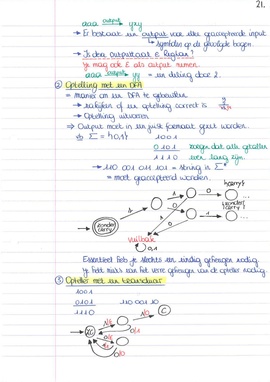 21.
aaaa output→ yyy
→ Er bestaat een output voor elke geaccepteerde input
↳ symbolen op de gevolgde bogen.
→ Is deze outputtaal ε Regular?
Je mag ook ε als output nemen.
aaaa output→ yy = een deling door 2.
② Optelling met een DFA
= manier om een DFA te gebruiken
→ nakijken of een optelling correct is
→ Optelling uitvoeren
⇒ Output moet in een juist formaat gezet worden.
1001
Σ = {0,1}
0101 zorgen dat alle getallen
1110 even lang zijn.
→ 110 001 011 101 = string in Σ*
= moet geaccepteerd worden.
zonder carry
1
0
1
0
carry?
zonder carry?
vuilbak
0,1
Essentieel heb je slechts een eindig geheugen nodig
Je hebt maar een bit verre geheugen van de optelling nodig.
③ Optellen met een transducer
1001
0101
110 001 10
1110
ZC
C